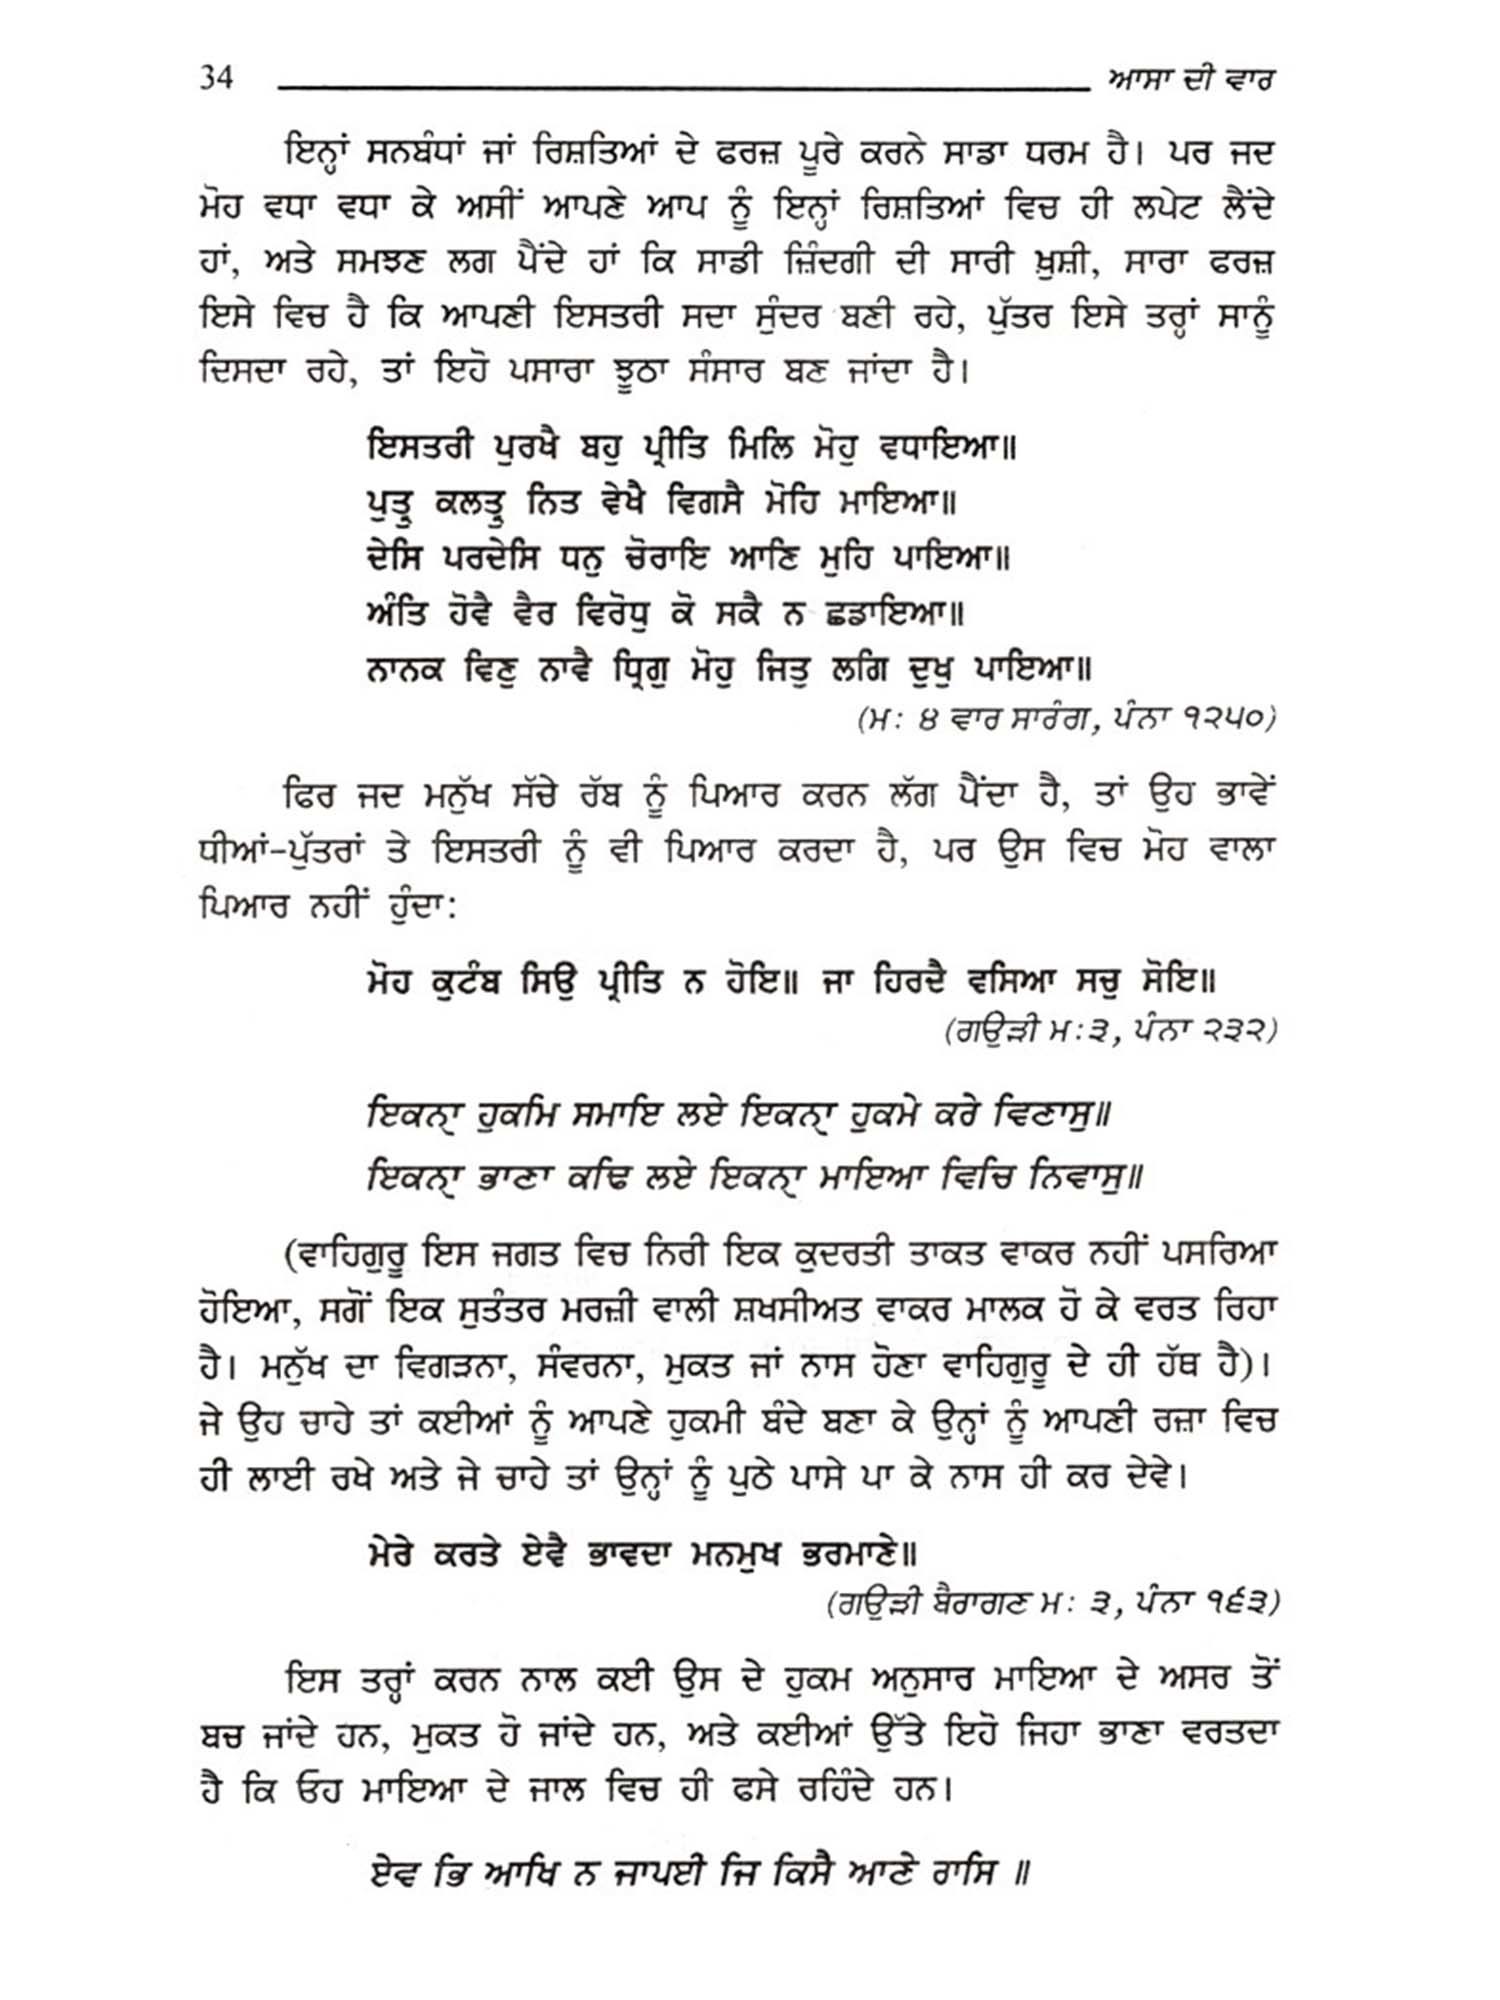 34 ਆਸਾ ਦੀ ਵਾਰ
ਇਨ੍ਹਾਂ ਸਨਬੰਧਾਂ ਜਾਂ ਰਿਸ਼ਤਿਆਂ ਦੇ ਫਰਜ਼ ਪੂਰੇ ਕਰਨੇ ਸਾਡਾ ਧਰਮ ਹੈ। ਪਰ ਜਦ
ਮੋਹ ਵਧਾ ਵਧਾ ਕੇ ਅਸੀਂ ਆਪਣੇ ਆਪ ਨੂੰ ਇਨ੍ਹਾਂ ਰਿਸ਼ਤਿਆਂ ਵਿਚ ਹੀ ਲਪੇਟ ਲੈਂਦੇ
ਹਾਂ, ਅਤੇ ਸਮਝਣ ਲਗ ਪੈਂਦੇ ਹਾਂ ਕਿ ਸਾਡੀ ਜ਼ਿੰਦਗੀ ਦੀ ਸਾਰੀ ਖ਼ੁਸ਼ੀ, ਸਾਰਾ ਫਰਜ਼
ਇਸੇ ਵਿਚ ਹੈ ਕਿ ਆਪਣੀ ਇਸਤਰੀ ਸਦਾ ਸੁੰਦਰ ਬਣੀ ਰਹੇ, ਪੁੱਤਰ ਇਸੇ ਤਰ੍ਹਾਂ ਸਾਨੂੰ
ਦਿਸਦਾ ਰਹੇ, ਤਾਂ ਇਹੋ ਪਸਾਰਾ ਝੂਠਾ ਸੰਸਾਰ ਬਣ ਜਾਂਦਾ ਹੈ।
ਇਸਤਰੀ ਪੁਰਖੈ ਬਹੁ ਪ੍ਰੀਤਿ ਮਿਲਿ ਮੋਹੁ ਵਧਾਇਆ॥
ਪੁਤ੍ਰੁ ਕਲਤ੍ਰੁ ਨਿਤ ਵੇਖੈ ਵਿਗਸੈ ਮੋਹਿ ਮਾਇਆ॥
ਦੇਸਿ ਪਰਦੇਸਿ ਧਨੁ ਚੋਰਾਇ ਆਣਿ ਮੁਹਿ ਪਾਇਆ॥
ਅੰਤਿ ਹੋਵੈ ਵੈਰ ਵਿਰੋਧੁ ਕੋ ਸਕੈ ਨ ਛਡਾਇਆ॥
ਨਾਨਕ ਵਿਣੁ ਨਾਵੈ ਧ੍ਰਿਗੁ ਮੋਹੁ ਜਿਤੁ ਲਗਿ ਦੁਖੁ ਪਾਇਆ॥
(ਮ: ੪ ਵਾਰ ਸਾਰੰਗ, ਪੰਨਾ ੧੨੫੦)
ਫਿਰ ਜਦ ਮਨੁੱਖ ਸੱਚੇ ਰੱਬ ਨੂੰ ਪਿਆਰ ਕਰਨ ਲੱਗ ਪੈਂਦਾ ਹੈ, ਤਾਂ ਉਹ ਭਾਵੇਂ
ਧੀਆਂ-ਪੁੱਤਰਾਂ ਤੇ ਇਸਤਰੀ ਨੂੰ ਵੀ ਪਿਆਰ ਕਰਦਾ ਹੈ, ਪਰ ਉਸ ਵਿਚ ਮੋਹ ਵਾਲਾ
ਪਿਆਰ ਨਹੀਂ ਹੁੰਦਾ:
ਮੋਹ ਕੁਟੰਬ ਸਿਉ ਪ੍ਰੀਤਿ ਨ ਹੋਇ॥ ਜਾ ਹਿਰਦੈ ਵਸਿਆ ਸਚੁ ਸੋਇ॥
(ਗਉੜੀ ਮ:੩, ਪੰਨਾ ੨੩੨)
ਇਕਨਾ੍ ਹੁਕਮਿ ਸਮਾਇ ਲਏ ਇਕਨਾ੍ ਹੁਕਮੇ ਕਰੇ ਵਿਣਾਸੁ॥
ਇਕਨਾ੍ ਭਾਣਾ ਕਢਿ ਲਏ ਇਕਨਾ੍ ਮਾਇਆ ਵਿਚਿ ਨਿਵਾਸੁ॥
(ਵਾਹਿਗੁਰੂ ਇਸ ਜਗਤ ਵਿਚ ਨਿਰੀ ਇਕ ਕੁਦਰਤੀ ਤਾਕਤ ਵਾਕਰ ਨਹੀਂ ਪਸਰਿਆ
ਹੋਇਆ, ਸਗੋਂ ਇਕ ਸੁਤੰਤਰ ਮਰਜ਼ੀ ਵਾਲੀ ਸ਼ਖਸੀਅਤ ਵਾਕਰ ਮਾਲਕ ਹੋ ਕੇ ਵਰਤ ਰਿਹਾ
ਹੈ। ਮਨੁੱਖ ਦਾ ਵਿਗੜਨਾ, ਸੰਵਰਨਾ, ਮੁਕਤ ਜਾਂ ਨਾਸ ਹੋਣਾ ਵਾਹਿਗੁਰੂ ਦੇ ਹੀ ਹੱਥ ਹੈ)।
ਜੇ ਉਹ ਚਾਹੇ ਤਾਂ ਕਈਆਂ ਨੂੰ ਆਪਣੇ ਹੁਕਮੀ ਬੰਦੇ ਬਣਾ ਕੇ ਉਨ੍ਹਾਂ ਨੂੰ ਆਪਣੀ ਰਜ਼ਾ ਵਿਚ
ਹੀ ਲਾਈ ਰਖੇ ਅਤੇ ਜੇ ਚਾਹੇ ਤਾਂ ਉਨ੍ਹਾਂ ਨੂੰ ਪੁਠੇ ਪਾਸੇ ਪਾ ਕੇ ਨਾਸ ਹੀ ਕਰ ਦੇਵੇ।
ਮੇਰੇ ਕਰਤੇ ਏਵੈ ਭਾਵਦਾ ਮਨਮੁਖ ਭਰਮਾਣੇ॥
(ਗਉੜੀ ਬੈਰਾਗਣ ਮ: ੩, ਪੰਨਾ ੧੬੩)
ਇਸ ਤਰ੍ਹਾਂ ਕਰਨ ਨਾਲ ਕਈ ਉਸ ਦੇ ਹੁਕਮ ਅਨੁਸਾਰ ਮਾਇਆ ਦੇ ਅਸਰ ਤੋਂ
ਬਚ ਜਾਂਦੇ ਹਨ, ਮੁਕਤ ਹੋ ਜਾਂਦੇ ਹਨ, ਅਤੇ ਕਈਆਂ ਉੱਤੇ ਇਹੋ ਜਿਹਾ ਭਾਣਾ ਵਰਤਦਾ
ਹੈ ਕਿ ਓਹ ਮਾਇਆ ਦੇ ਜਾਲ ਵਿਚ ਹੀ ਫਸੇ ਰਹਿੰਦੇ ਹਨ।
ਏਵ ਭਿ ਆਖਿ ਨ ਜਾਪਈ ਜਿ ਕਿਸੈ ਆਣੇ ਰਾਸਿ ॥